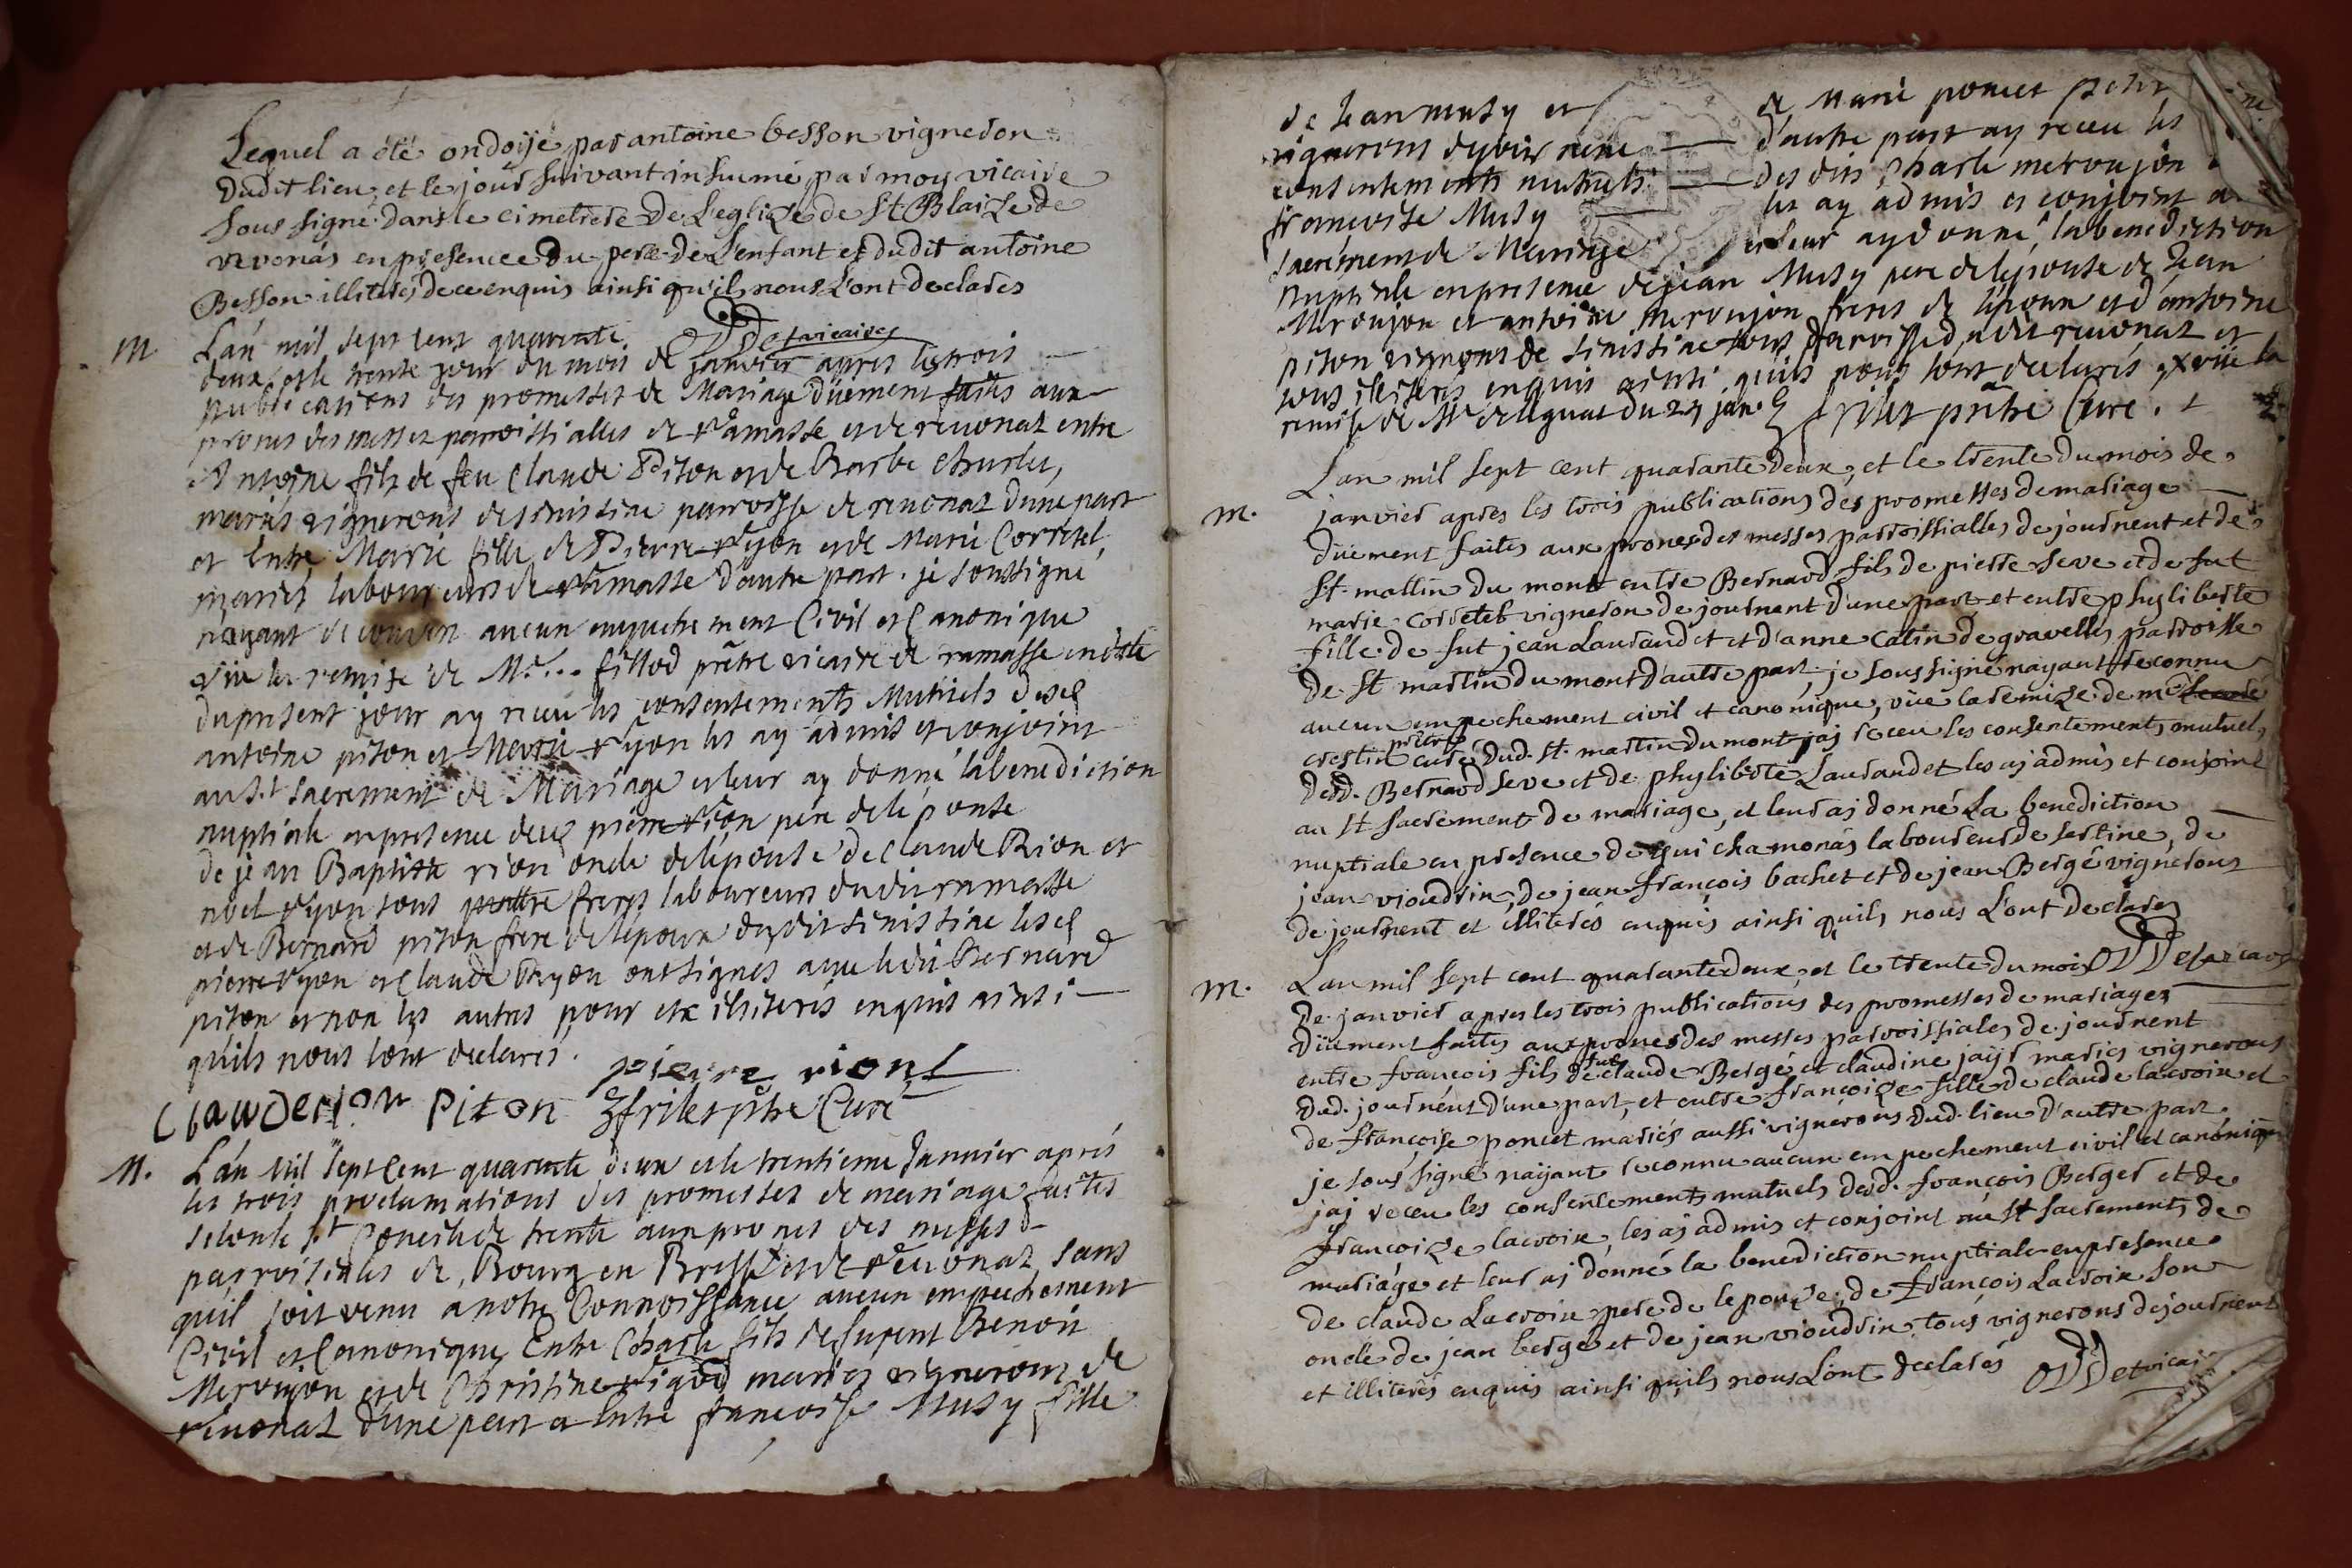 Lequel a été ondoijé par antoine besson vigneron
dudit lieu, et le jour suivant inhumé par moy vicaire
sous signé dans le cimetiere de L'eglize de St Blaize de
revonás en presence du pere de L'enfant et dudit antoine
Besson illiterés de ce enquis ainsi qu'ils nous L'ont declarés
vicaires
M
Lán mil sept cent quarente
deux et le trente jour du mois de janvier apres les trois
publications des promesses de Mariage düement faites aux
pronès des messes parroissialles de râmasse et de revonaz entre
Antoine fils de feu Claude Piton et de Barbe Charlet,
mariés vignerons de senissiae parroisse de revonaz dune part
et Entre Marie fille de Pierre ryon et de Marie Corretel,
mariés laboureurs de râmasse d'autre part. je soussigné
nayant decouvert aucun empechement Civil et Canonique
vüe la remise de Mr... fillod prêtre vicaire de ramasse en date
du present jour ay receu les consentements Mutuels desd
antoine piton et Marie ryon les ay admis et conjoint
au S.t Sacrement de Mariage et leur ay donné la benediction
nuptiale en presence dud pierre rion pere de lépouse
de jean Baptiste rion oncle delépouse de Claude Rion et
noel ryon tous frers laboureurs dudit ramasse
et de Bernard piton frere de lepoux dudit senissiae lesd
pierre ryon et Claude Ryon ont signés avec ledit Bernard
piton et non les autres pour etre illiterés enquis ainsi
quils nous lont declarés.
pierre riont
Clawde rion Piton frilet ptre Curé
M.
Lán Mil Sept Cent quarente deux et le trentieme Janvier aprés
les trois proclamations des promesses de mariage faites
selon le st Concile de trente aux prones des messes
parroissiales de Bourg en Bresse et de revonaz, Sans
qu'il soit venu a notre Connoissance aucun empechement
Civil et Canonique Entre Charle fils de furent Benoit
Meroujon et de Christine rigod mariés vignerons de
revonaz d'une part et Entre francoise Musy fille
de Jean musy et de Marie poncet
vignerons d'autre part ay receu les
consentements mutuels des dits Charle meroujon
francoise Musy les ay admis et conjoint a
Sacrement de Mariage et leur ay donné la benediction
Nuptiale en presence de jean Musy pere de lepouse de Jean
Meroujon et antoine meroujon freres de lépoux et d'antoine
piton vignerons de senissiae tous parroisse dudit revonaz et
tous illiterés enquis ainsi quils nous lont declarés vüe la
remise de Mr deleguat du 27 janv. frilet prêtre Curé.
m.
Lan mil sept cent quarante deux, et le trente du mois de
janvier apres les trois publications des promesses de mariage
düement faites aux pronesdes messes parroissialles de journent et de
St. martin du mont entre Bernard fils de pierre seve et de fut
marie corretel vigneron de journent d'une part et entre phyliberte
fille de fut jean Laurandet et d'anne Catin de gravelles parroisse
de St martin du mont d'autre part, je soussigné nayant reconnu
aucun empechement civil et canonique, vüe la remize de mr
crestin prêtre curé dud. St. martin du mont jaj receu les consentements mutuels
desd. Bernard seve et de phyliberte Laurandet les aj admis et conjoint
au St sacrement de mariage, et leur aj donné La benediction
nuptiale en presence de gui chamonás laboureur de sertine, de
jean vioudrin, de jean françois bachet et de jean Bergé vignerons
de journent et illiterés enquis ainsi quils nous L'ont declares
m.
Lan mil sept cent quarante deux, et le trente du mois
de janvier apres les trois publications des promesses de mariages
düement faites aux pronesdes messes parroissiales de journent
entre françois fils de fut claude Bergé et claudine jaÿr maries vignerons
dud. journent d'une part, et entre françoize fille de claude lacroix et
de françoise poncet mariés aussi vignerons dud. lieu d'autre part
je sous signé nayant reconnu aucun empechement civil et canonique
jaj receu les consentements mutuels desd. françois Berger et de
françoize lacroix, les aj admis et conjoint au St sacrement de
mariáge et leur aj donné la benediction nuptiale en presence
de claude Lacroix pere de lepouze, de françois Lacroix son
oncle de jean bergé et de jean vioudrin tous vignerons de journent
et illiterés enquis ainsi quils nous Lont declarés